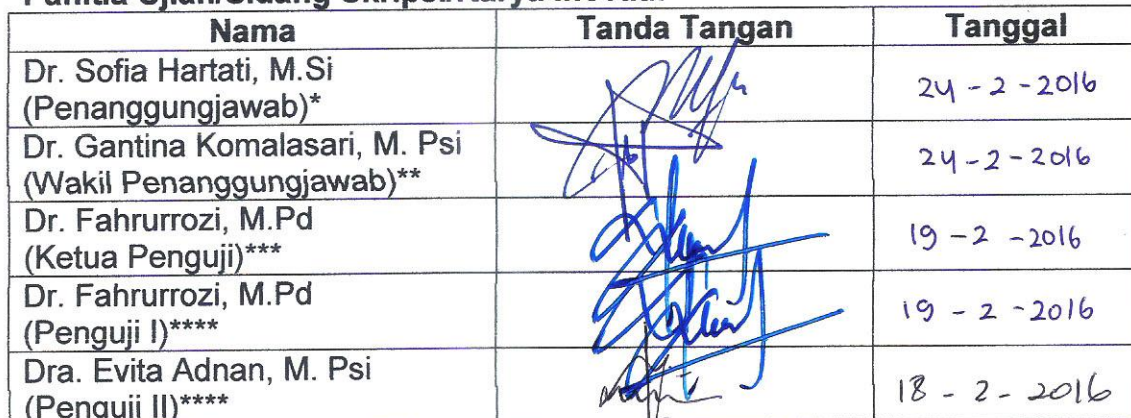 Panitia Ujian/Sidang Skripsi/Karya Inovatif
Nama Tanda Tangan Tanggal
Dr. Sofia Hartati, M.Si
(Penanggungjawab)* 24 - 2 - 2016
Dr. Gantina Komalasari, M. Psi
(Wakil Penanggungjawab)** 24 - 2 - 2016
Dr. Fahrurrozi, M.Pd
(Ketua Penguji)*** 19 - 2 - 2016
Dr. Fahrurrozi, M.Pd
(Penguji I)**** 19 - 2 - 2016
Dra. Evita Adnan, M. Psi
(Penguji II)**** 18 - 2 - 2016